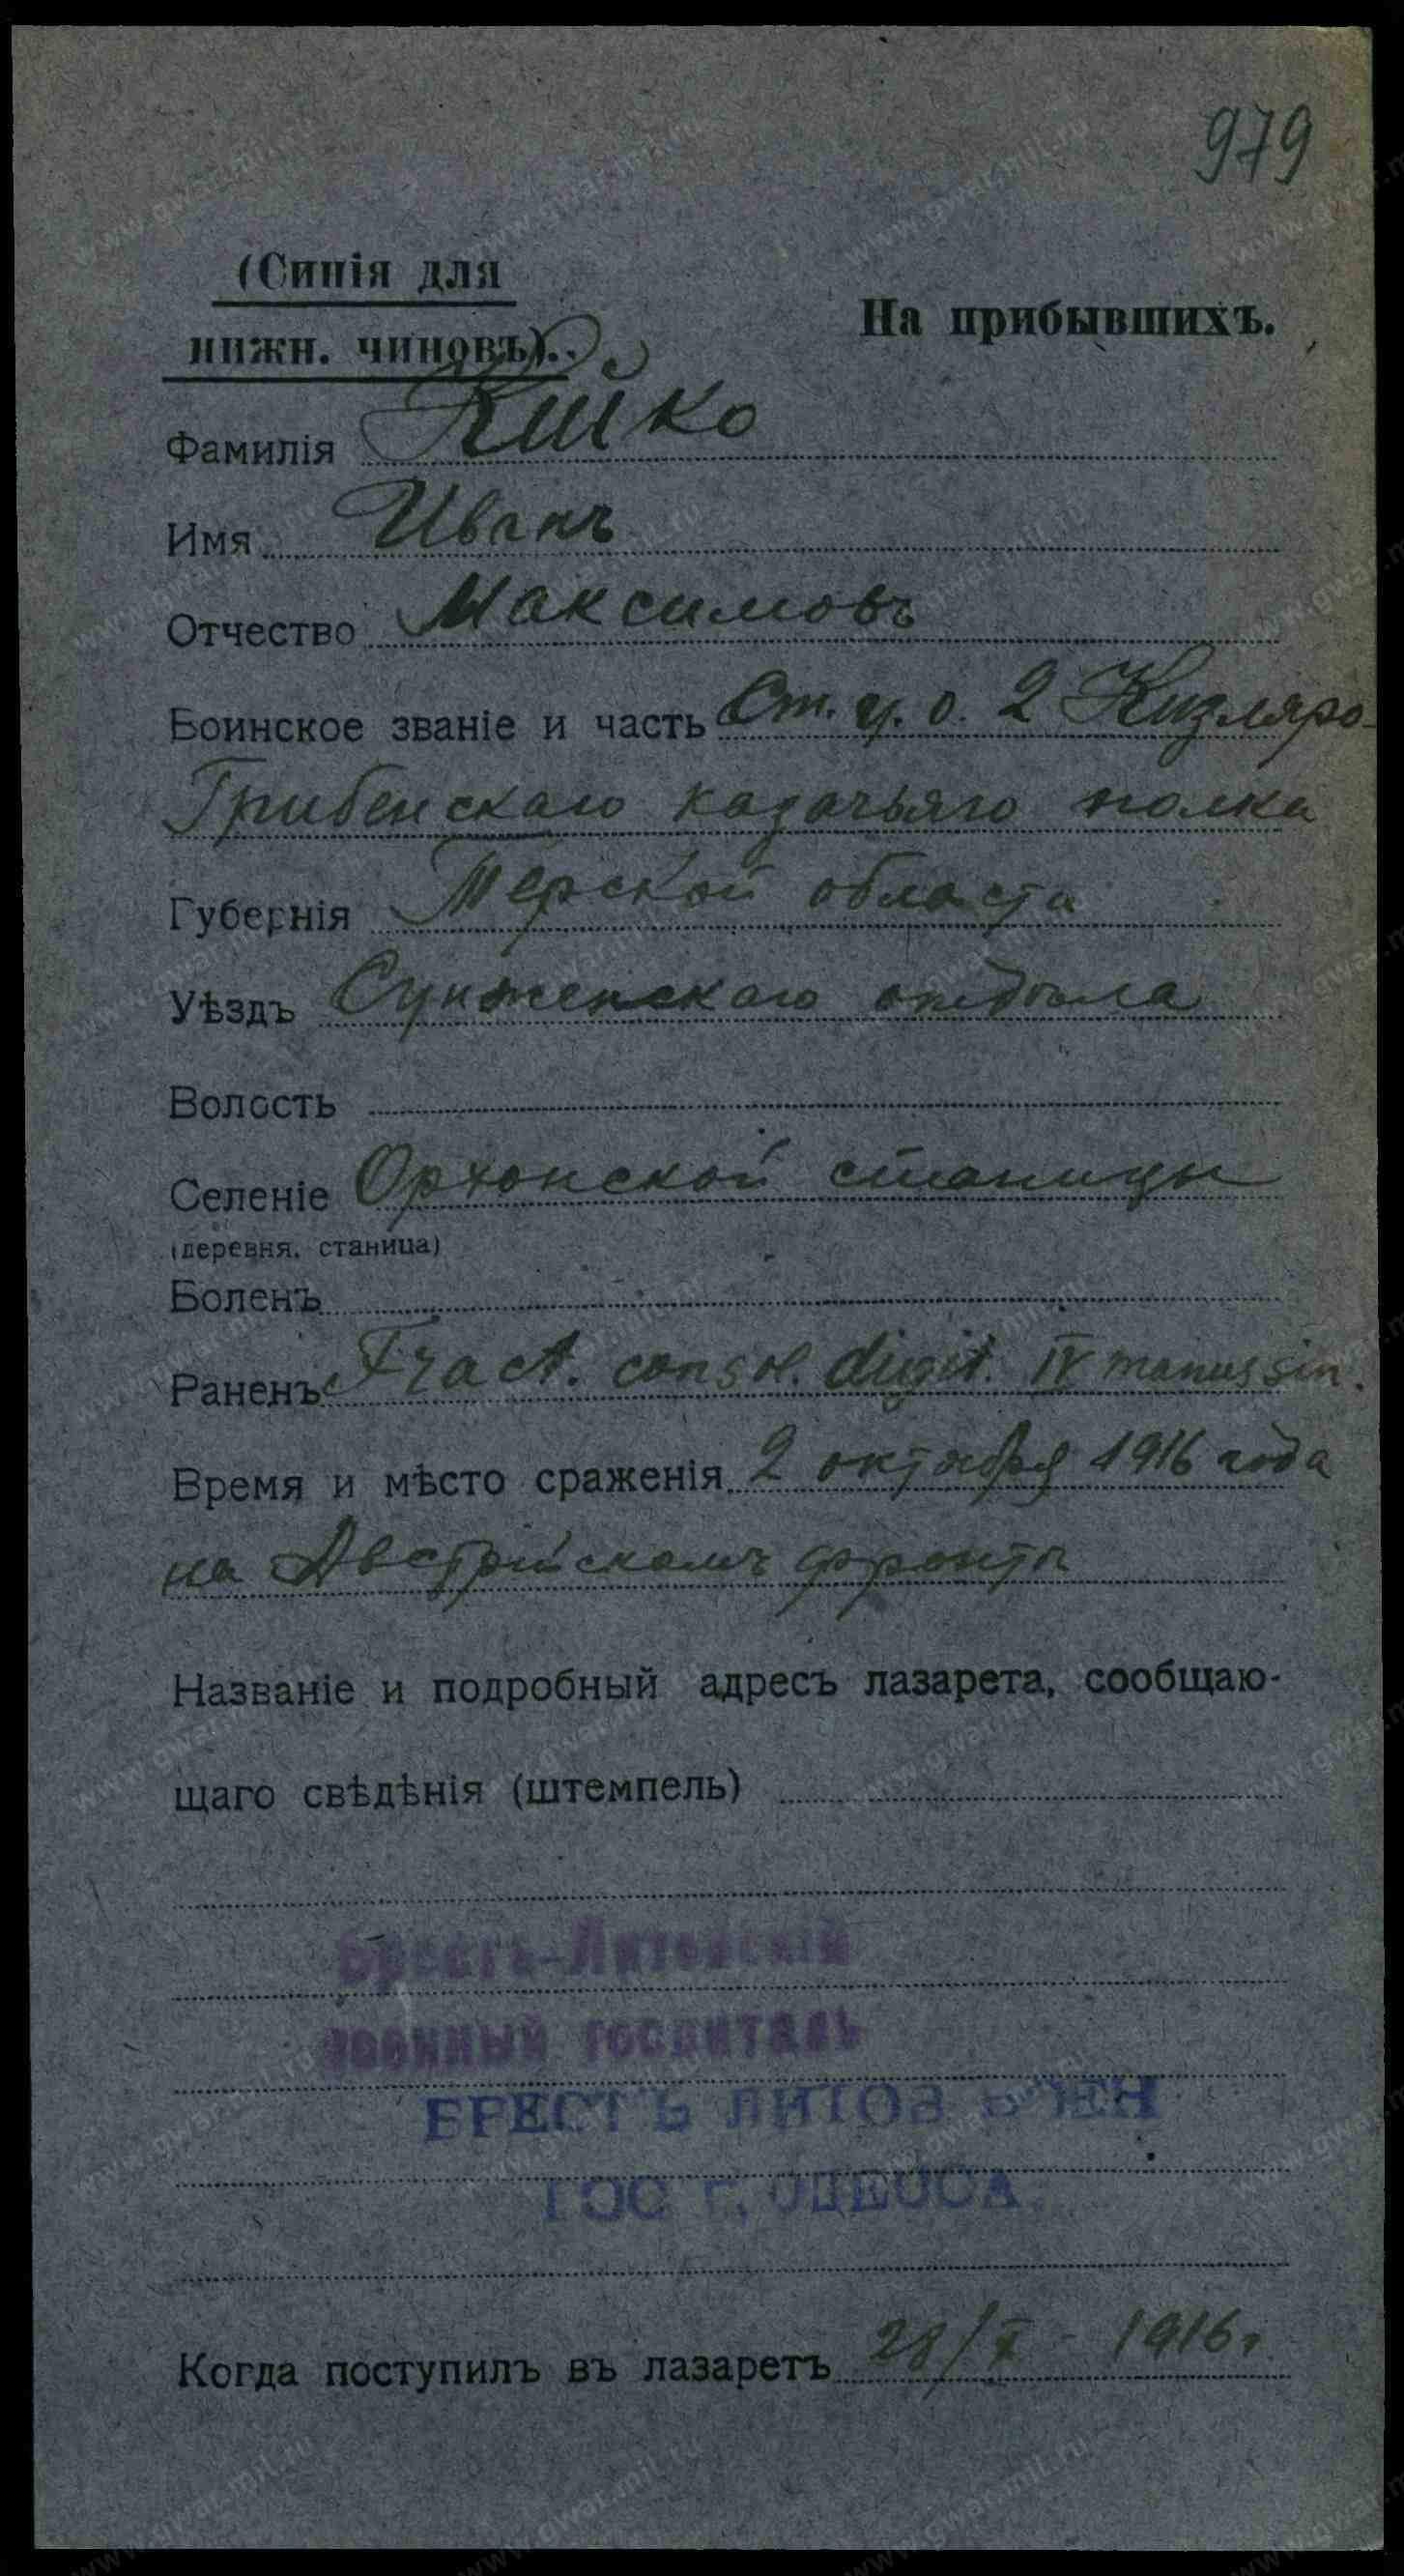 979
(Синія для
нижн. чиновъ).
На прибывшихъ.
Фамилія Кійко
Имя Иванъ
Отчество Максимовъ
Воинское званіе и часть Ст. у. о. 2 Кизляро-
Грибенскаго казачьяго полка
Губернія Терской области
Уѣздъ Сунженскаго отдѣла
Волость
Селеніе Орхонской станицы
(деревня, станица)
Боленъ
Раненъ Fract. consol. digit. IV manus sin.
Время и мѣсто сраженія 2 октября 1916 года
на Австрійскомъ фронтѣ
Названіе и подробный адресъ лазарета, сообщаю-
щаго свѣдѣнія (штемпель)
Брестъ-Литовскій
военный госпиталь
БРЕСТЪ ЛИТОВ ВОЕН
ГОС г. ОДЕССА.
Когда поступилъ въ лазаретъ 28/X - 1916 г.
www.gwar.mil.ru